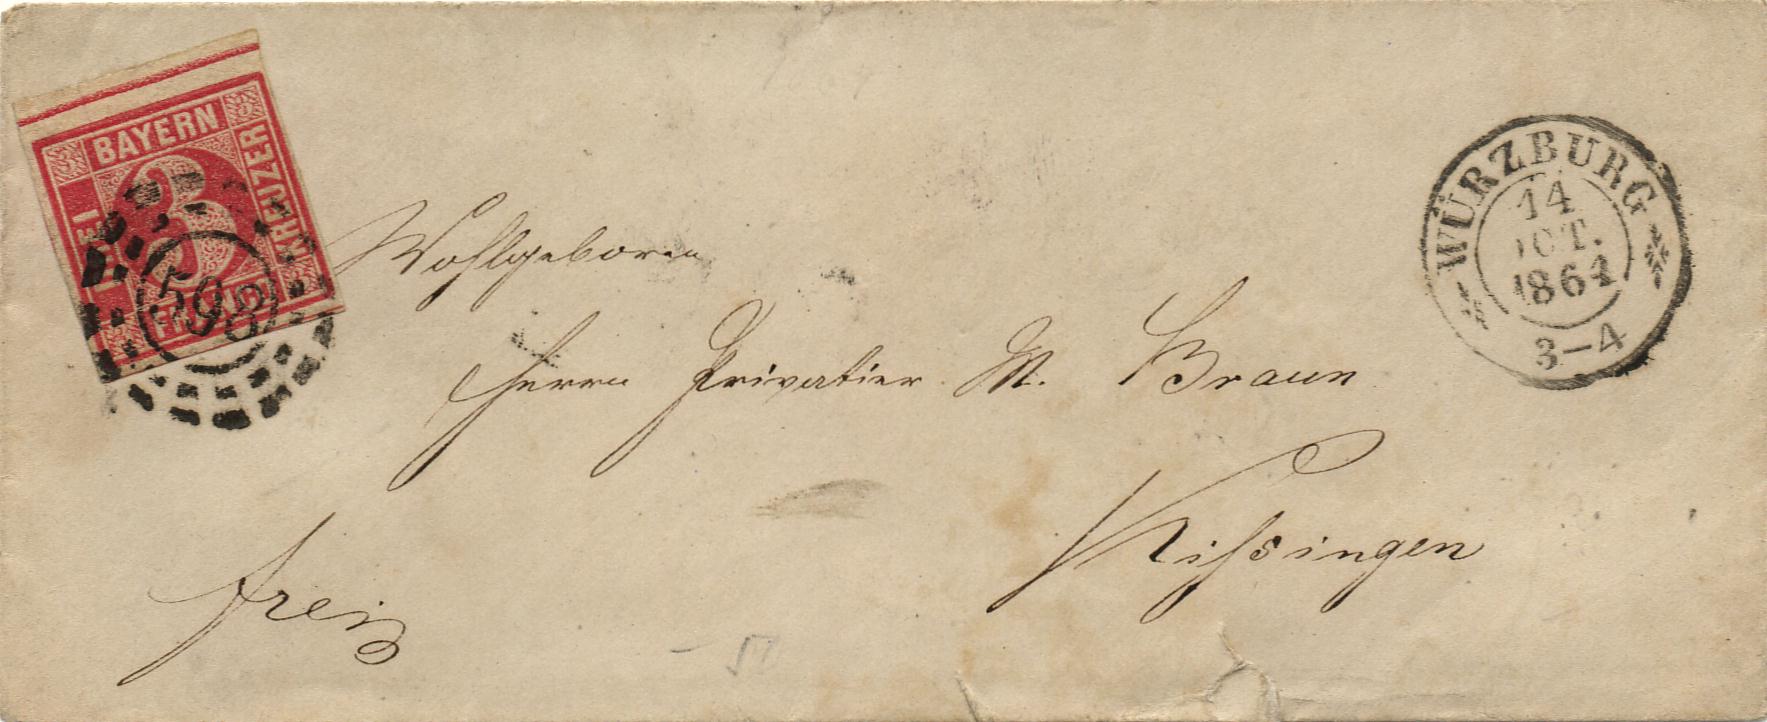 BAYERN
3
3
DREI
KREUZER
FRANCO
598
WÜRZBURG
14
OCT.
1864
3-4
Wohlgeboren
Herrn Privatier M. Braun
Kissingen
frei